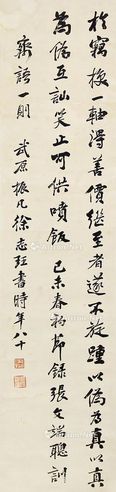 於竊攘一軸得善價繼至者遂不旋踵以偽為真以真
為偽互訕笑止可供噴飯 己未春初節錄張文端聰訓
齋語一則 武原振凡徐志珏書時年八十